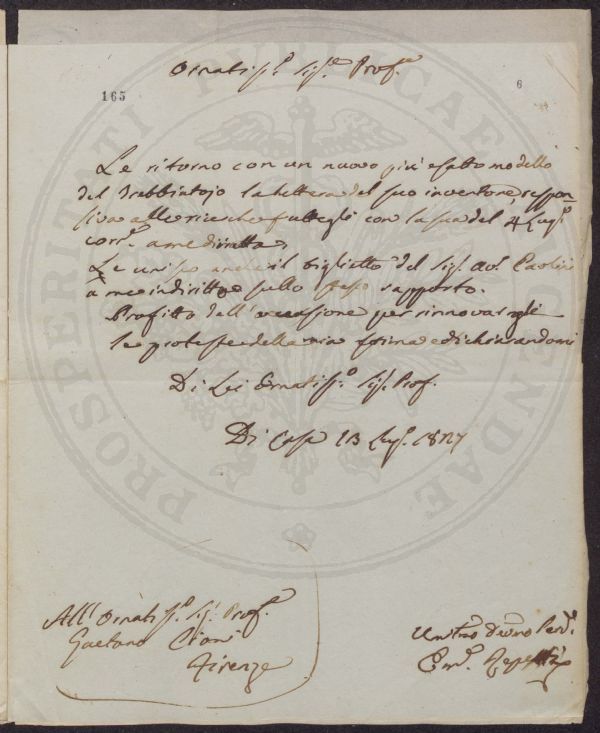 Ornatiss.º Sig.re Prof.e
165
6
Le ritorno con un nuovo più esatto modello
del Trebbiatojo la lettera del suo inventore, respon-
siva alle ricerche fattegli con la sua del 4 Lug.º
corr.e a me diretta.
Le unisco anche il biglietto del Sig. Av. Paolini
a me indiritto sullo stesso rapporto.
Profitto dell'occasione per rinnovargli
le proteste della mia stima e dichiarandomi
Di Lei Ornatiss.º Sig. Prof.
Di Casa 13 Lug. 1827
All' Ornatiss.º Sig. Prof.e
Gaetano Cioni
Firenze
Um.mo Dev.mo Serv.
Em. Repetti
PROSPERITATI PUBLICAE AUGENDAE